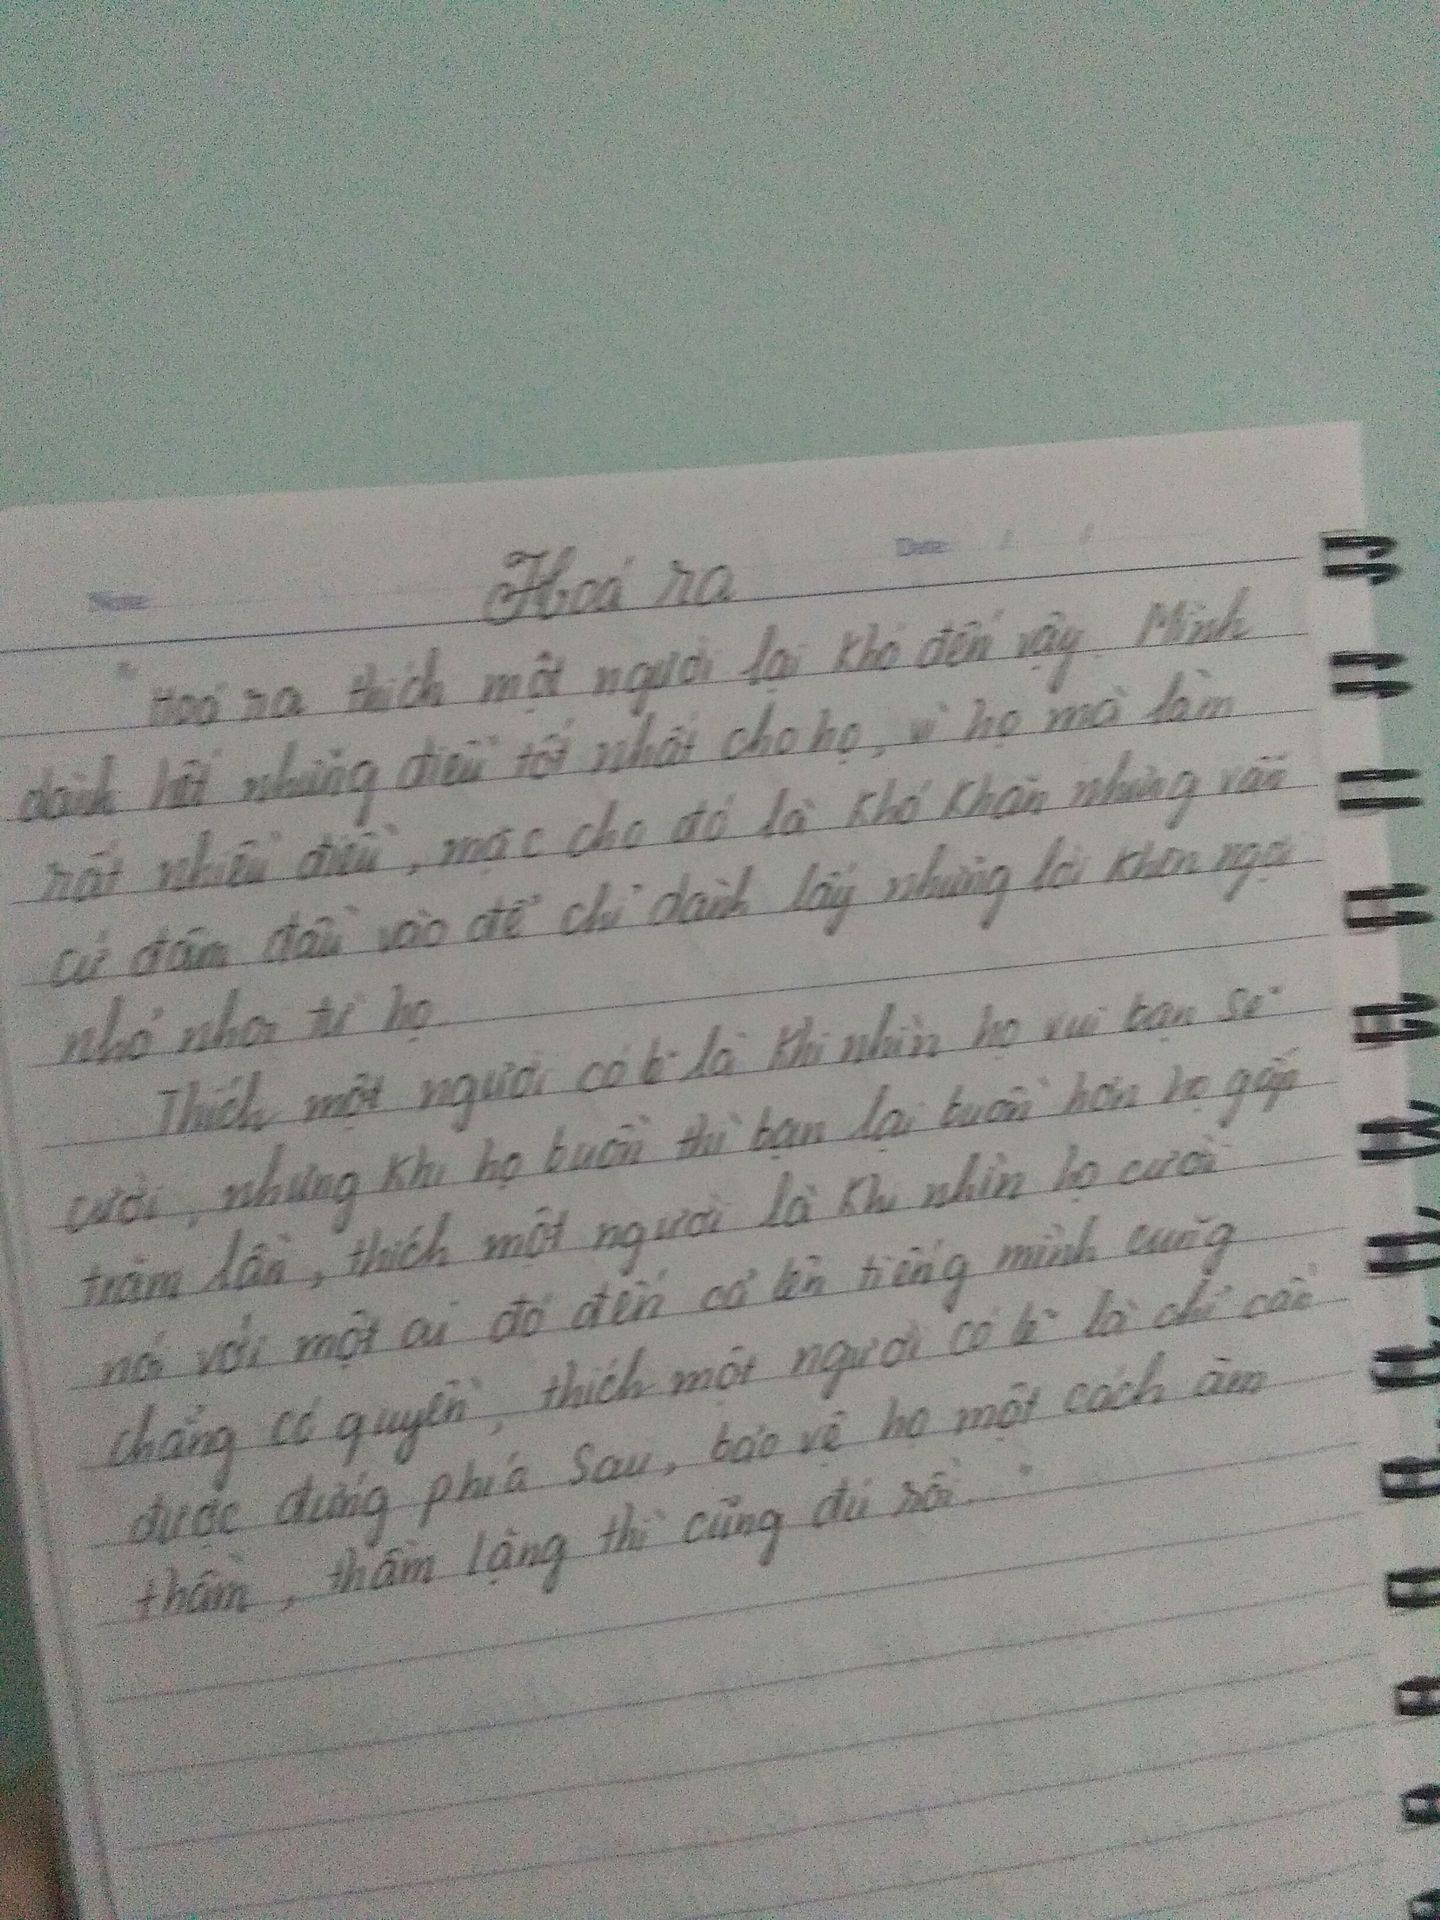 Note:
Date: / /
Hoá ra
" Hoá ra thích một người lại khó đến vậy. Mình
dành hết những điều tốt nhất cho họ, vì họ mà làm
rất nhiều điều, mặc cho đó là khó khăn nhưng vẫn
cứ đâm đầu vào để chỉ dành lấy những lời khen ngợi
nhỏ nhoi từ họ.
Thích một người có lẽ là khi nhìn họ vui bạn sẽ
cười, nhưng khi họ buồn thì bạn lại buồn hơn họ gấp
trăm lần, thích một người là khi nhìn họ cười
nói với một ai đó đến cả lên tiếng mình cũng
chẳng có quyền, thích một người có lẽ là chỉ cần
được đứng phía sau, bảo vệ họ một cách âm
thầm, thầm lặng thì cũng đủ rồi. "